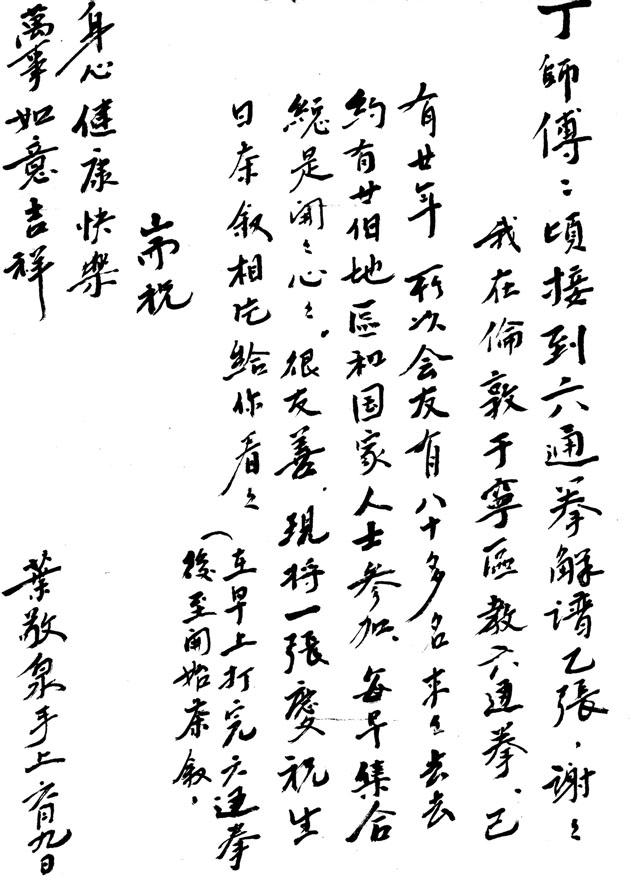 丁師傅：頃接到六通拳解譜乙張，謝々
我在倫敦于寧區教六通拳、已
有廿年 所以会友有八十多名来々去去
約有廿佰地區和国家人士參加、每早集合
總是開々心々。很友善．現將一張慶祝生
日茶敘相片給你看々
（在早上打完六通拳
後至開始茶敘，
耑祝
身心健康快樂
萬事如意吉祥
葉敬泉手上六月九日